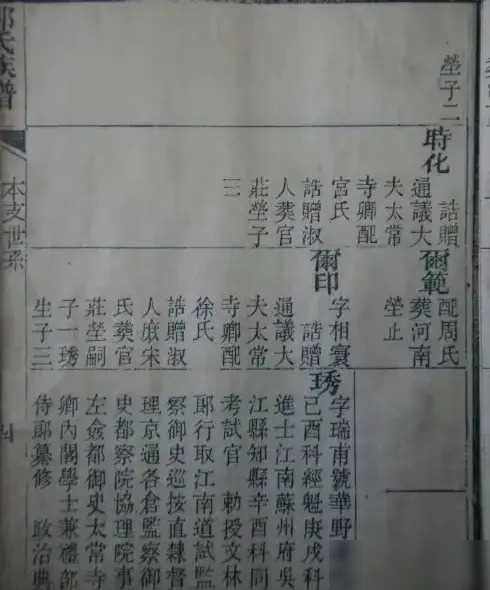 塋子二
時化
誥贈
通議大
夫太常
寺卿配
宮氏
誥贈淑
人葬官
莊塋子
三
爾範
配周氏
葬河南
塋止
爾印
字相寰
誥贈
通議大
夫太常
寺卿配
徐氏
誥贈淑
人庶宋
氏葬官
莊塋嗣
子一琇
生子三
琇
字瑞南號華野
己酉科經魁庚戌科
進士江南蘇州府吳
江縣知縣辛酉科同
考試官 勅授文林
郎行取江南道試監
察御史巡按直隸督
理京通各倉監察御
史都察院協理院事
左僉都御史太常寺
卿內閣學士兼禮部
侍郎纂修 政治典
氏族譜
本支世系